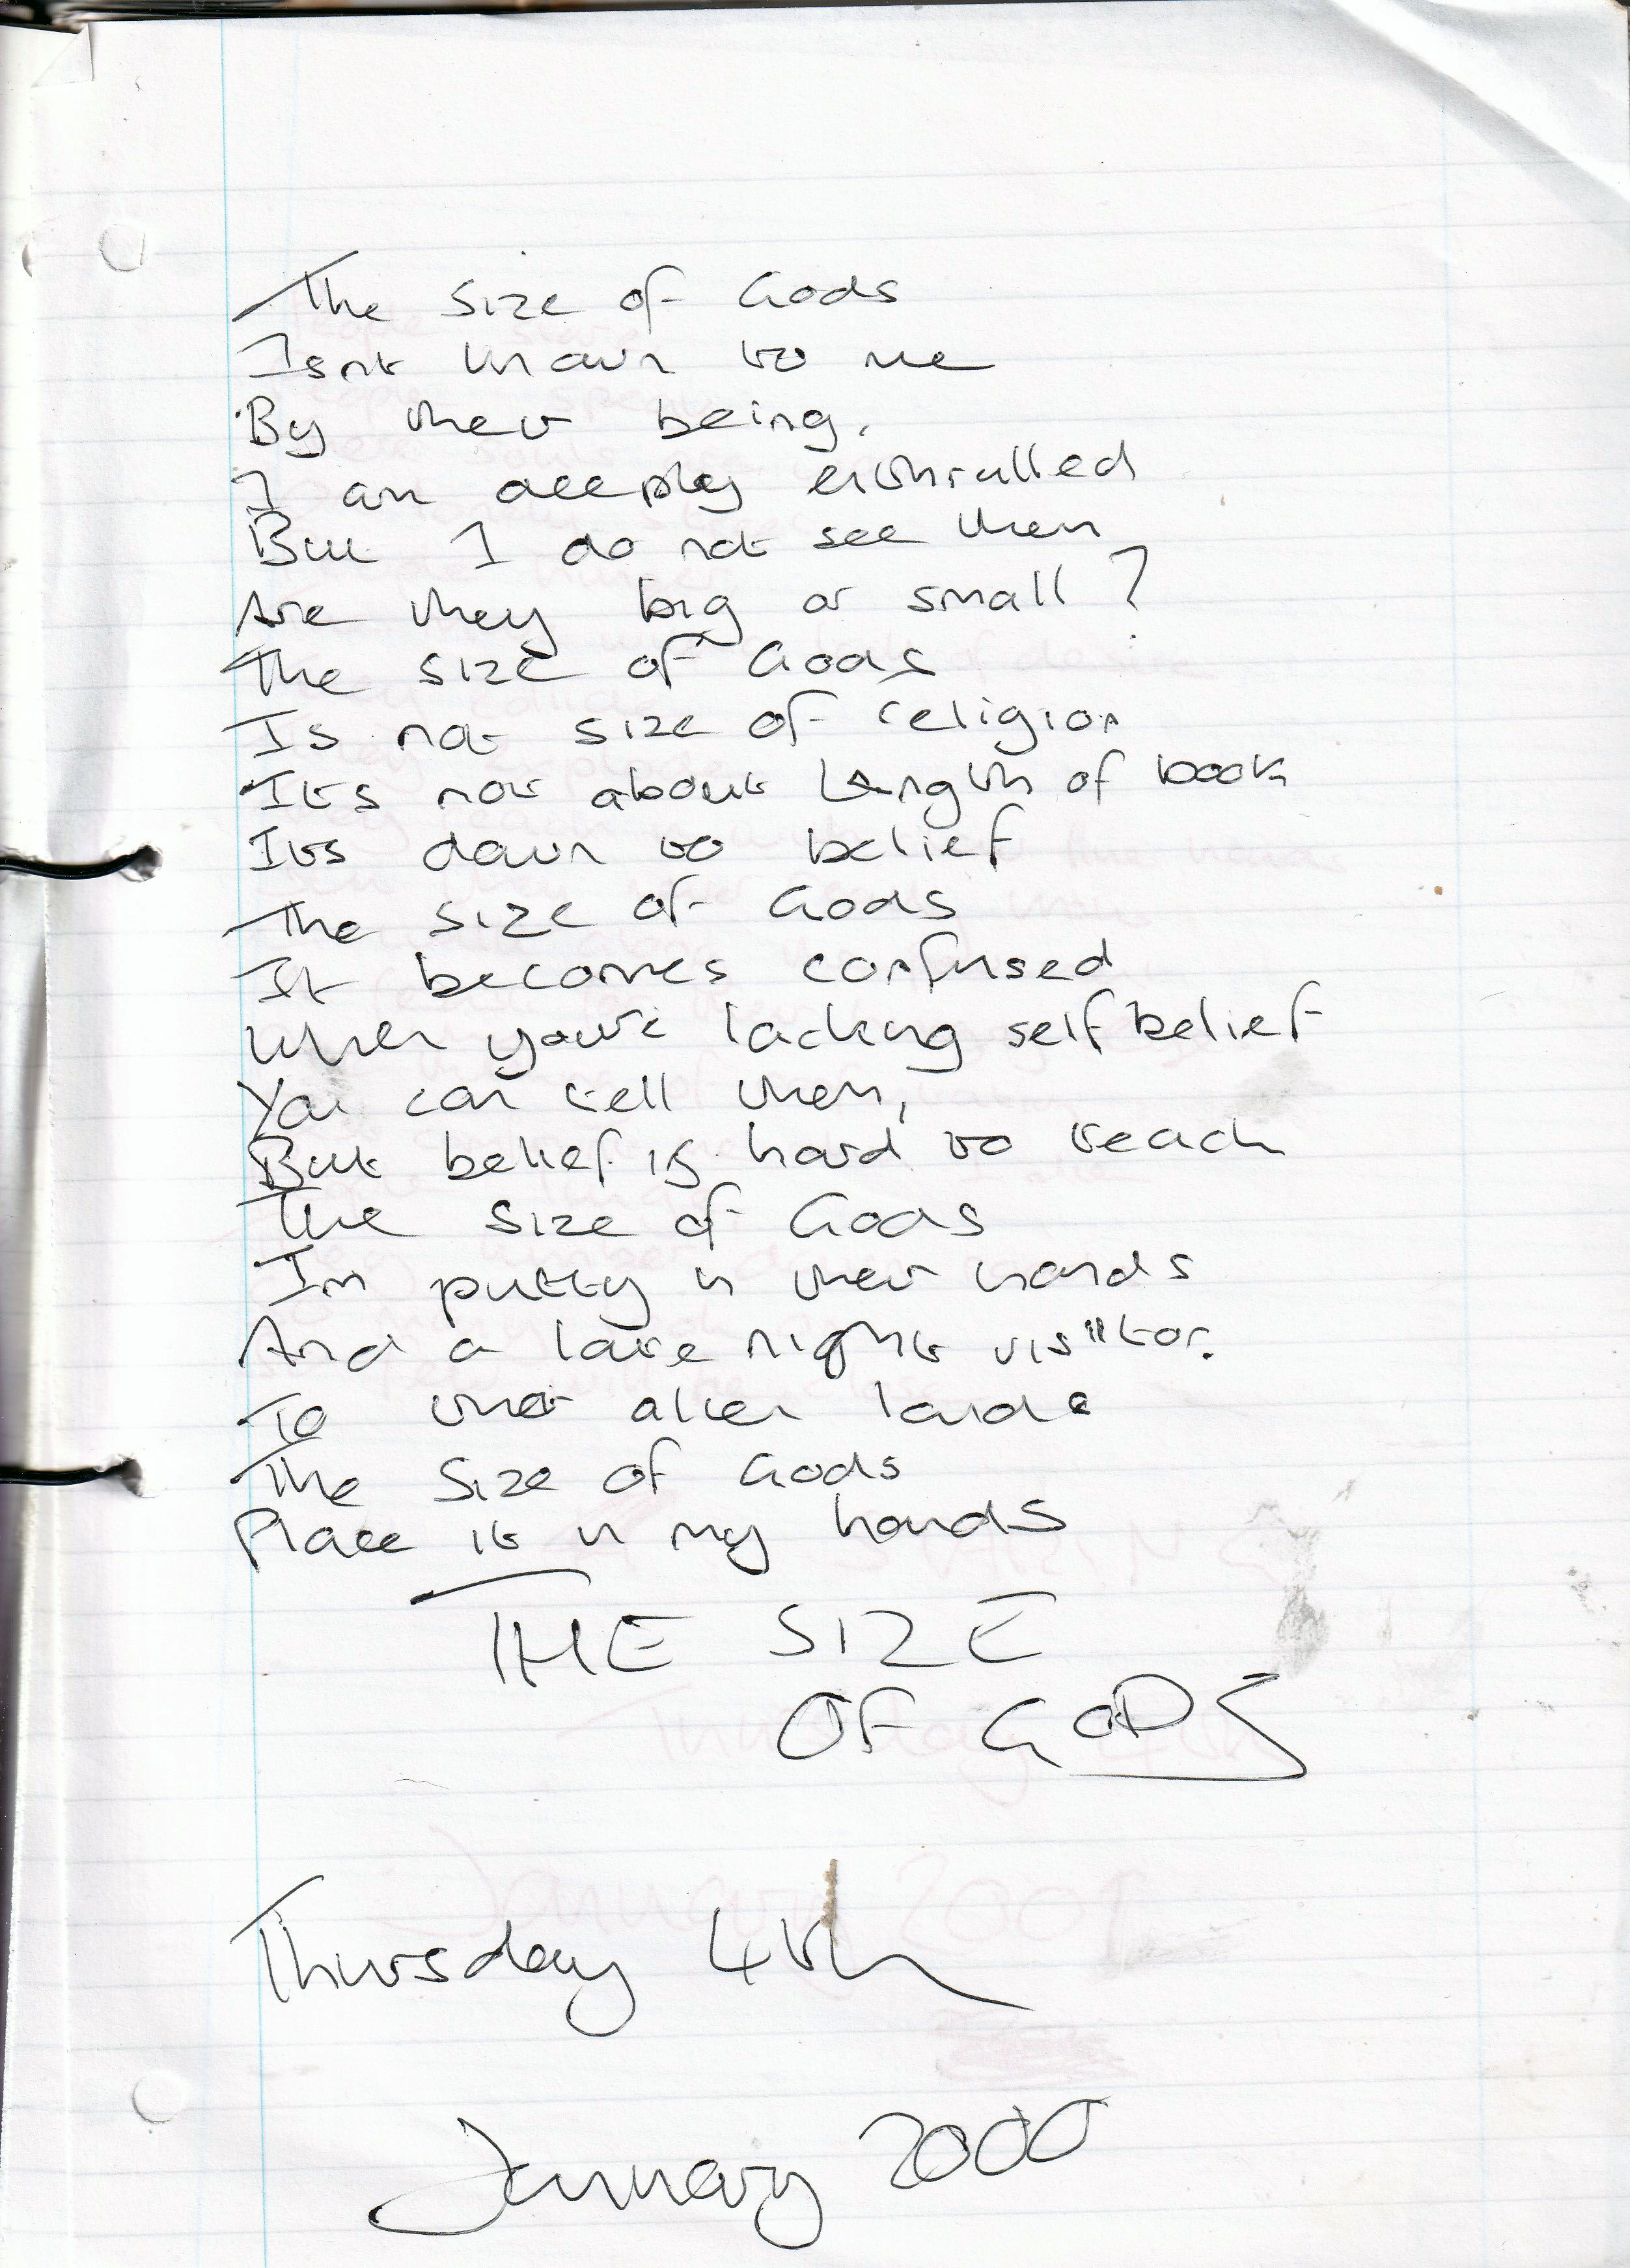 The size of Gods
Isnt known to me
By their being.
I am deeply enthralled
But I do not see them
Are they big or small?
The size of Gods
Is not size of religion
Its not about Length of book
Its down to belief
The size of Gods
It becomes confused
When you're lacking self belief
You can tell them,
But belief is hard to teach
The size of Gods
Im putty in their hands
And a late night visitor.
To that alien land
The size of Gods
Place it in my hands
THE SIZE
OF GODS
Thursday 4th
January 2000